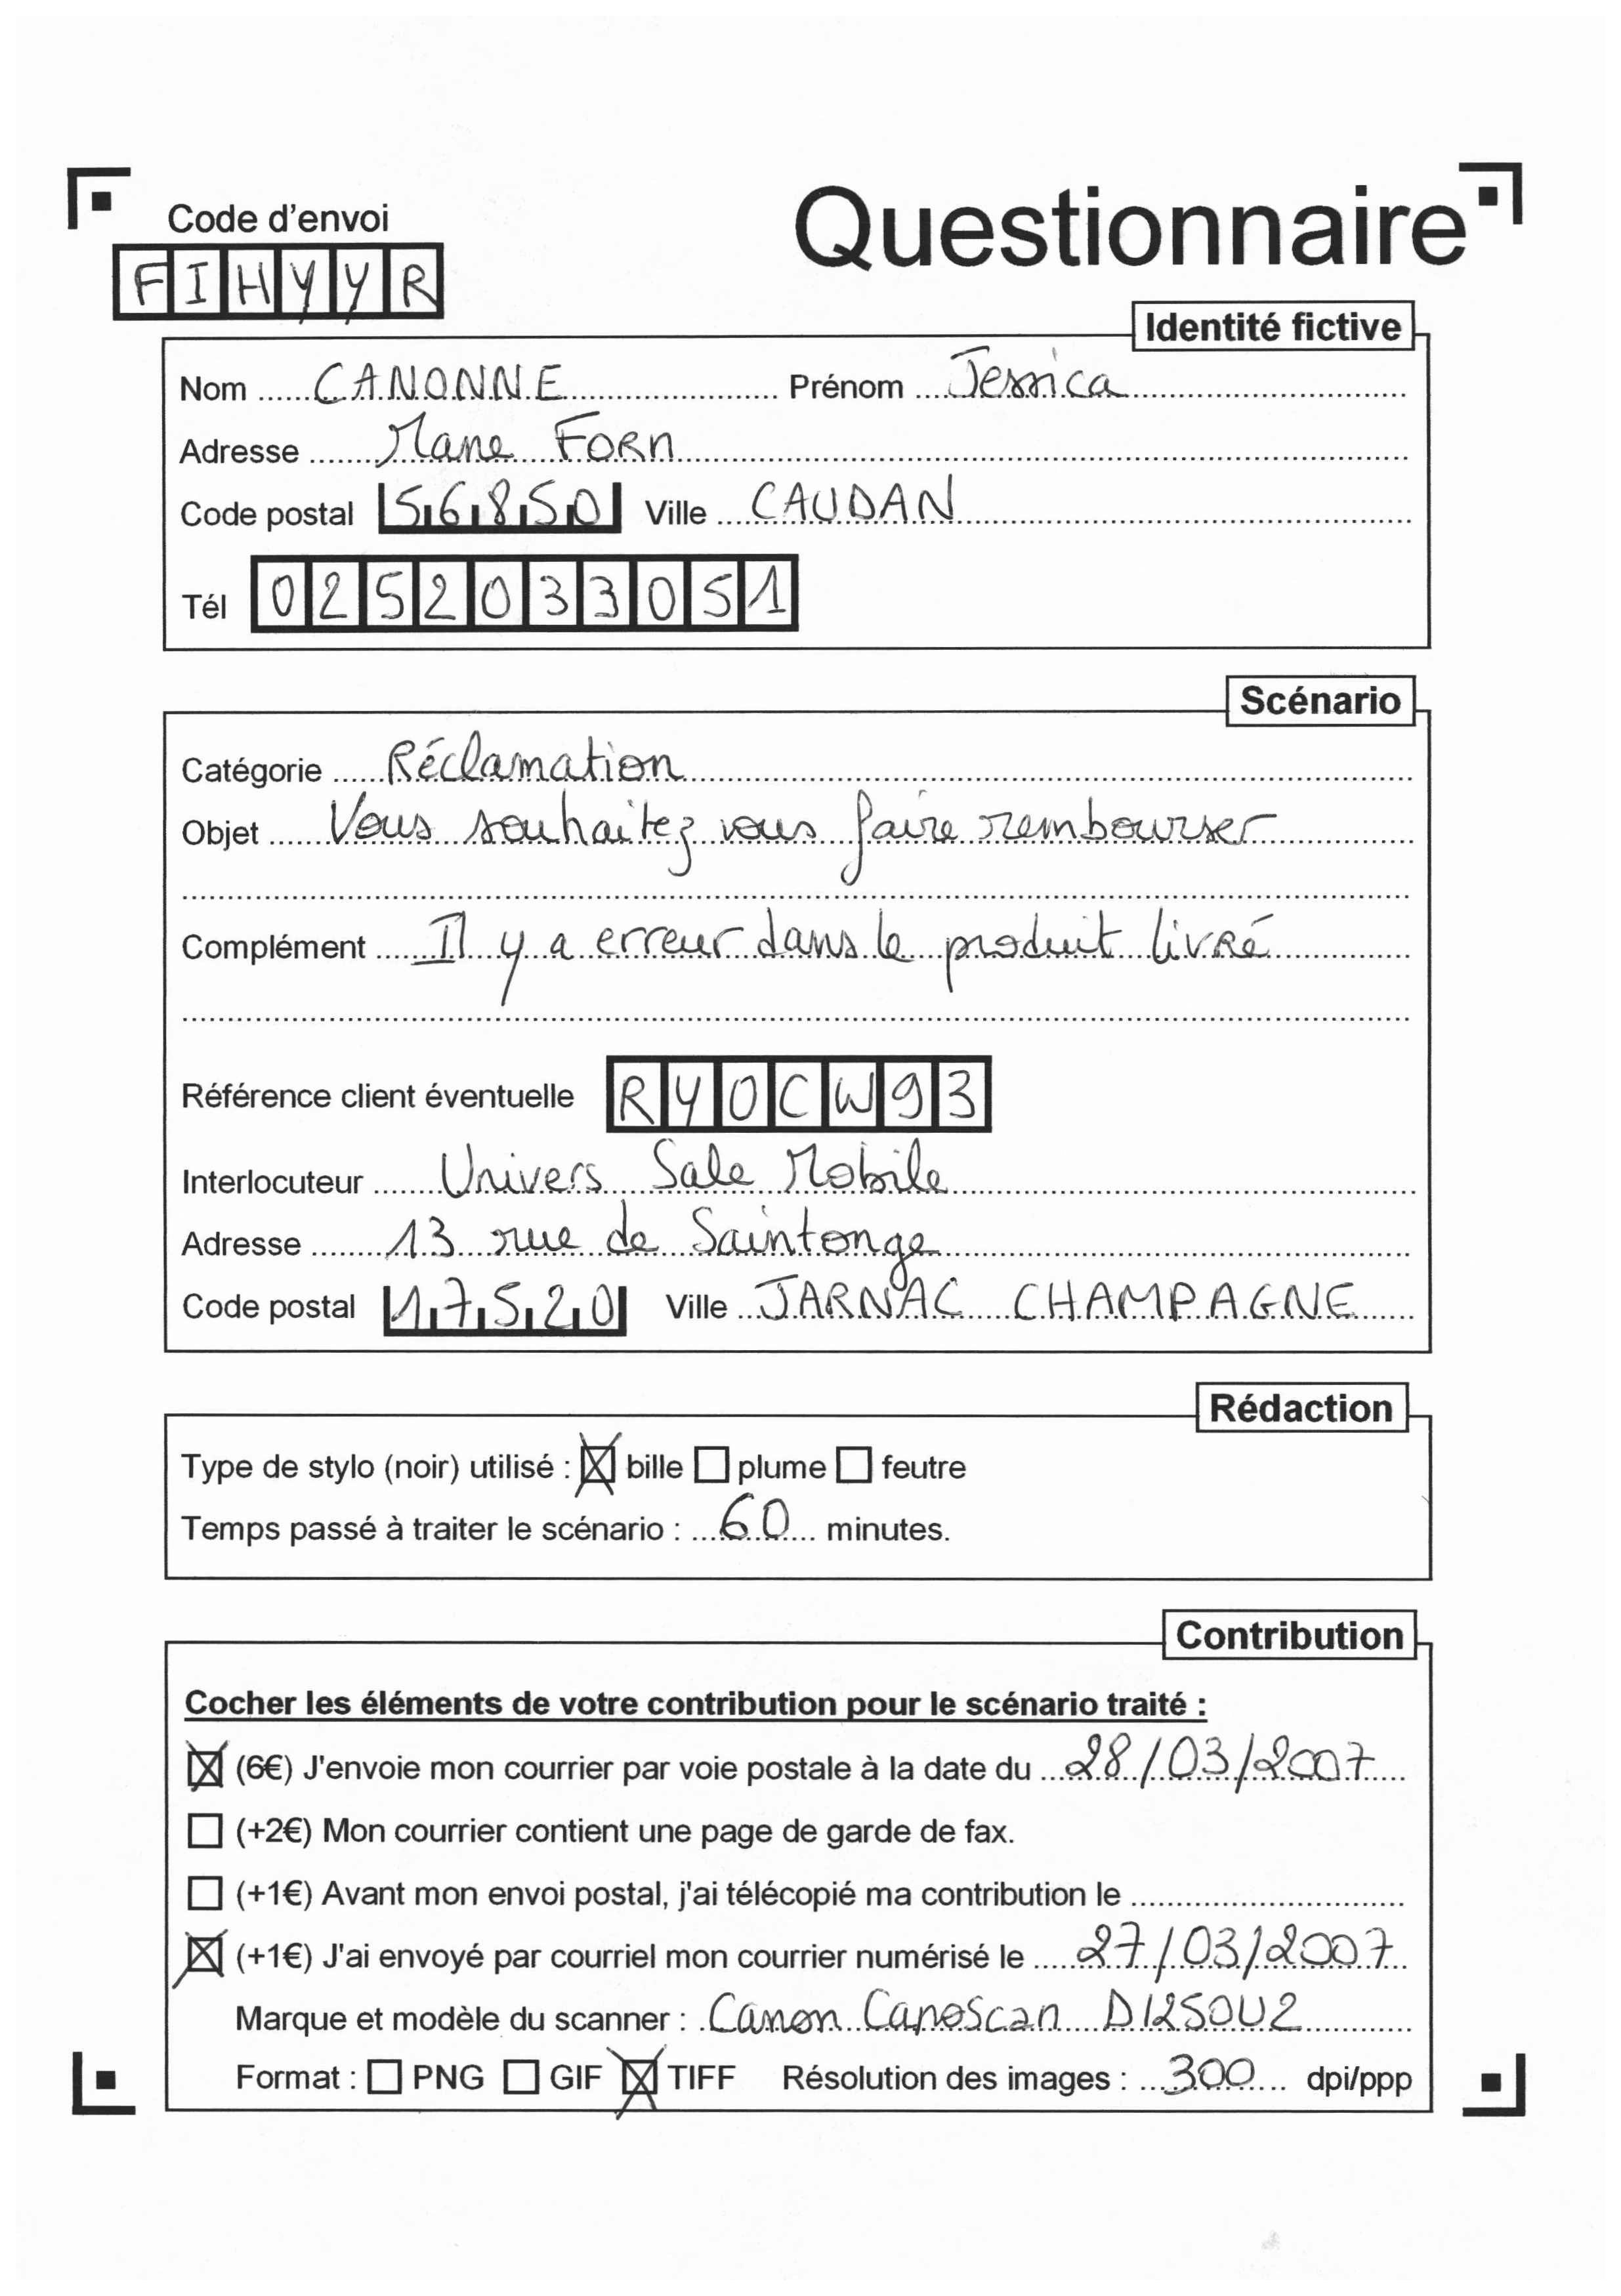 Questionnaire
Code d'envoi
FIHYYR
Identité fictive
Nom CANONNE Prénom Jessica
Adresse Mane Forn
Code postal 56850 Ville CAUDAN
Tél 0252033051
Scénario
Catégorie Réclamation
Objet Vous souhaitez vous faire rembourser
Complément Il y a erreur dans le produit livré
Référence client éventuelle RYOCW93
Interlocuteur Univers Sale Mobile
Adresse 13 rue de Saintonge
Code postal 17520 Ville JARNAC CHAMPAGNE
Rédaction
Type de stylo (noir) utilisé : ☒ bille ☐ plume ☐ feutre
Temps passé à traiter le scénario : 60 minutes.
Contribution
Cocher les éléments de votre contribution pour le scénario traité :
☒ (6€) J'envoie mon courrier par voie postale à la date du 28/03/2007
☐ (+2€) Mon courrier contient une page de garde de fax.
☐ (+1€) Avant mon envoi postal, j'ai télécopié ma contribution le
☒ (+1€) J'ai envoyé par courriel mon courrier numérisé le 27/03/2007
Marque et modèle du scanner : Canon Canoscan D1250U2
Format : ☐ PNG ☐ GIF ☒ TIFF Résolution des images : 300 dpi/ppp